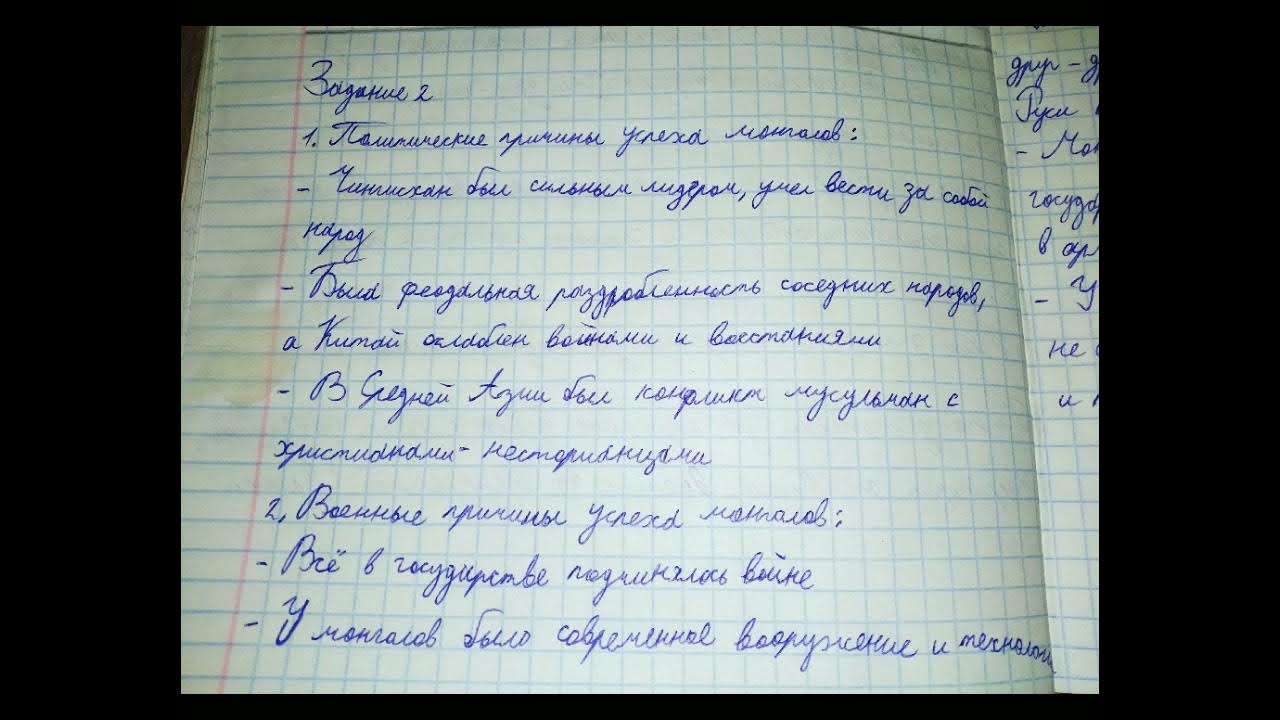 Задание 2
1. Политические причины успеха монголов:
- Чингисхан был сильным лидером, умел вести за собой
народ
- Была феодальная раздробленность соседних народов,
а Китай ослаблен войнами и восстаниями
- В Средней Азии был конфликт мусульман с
христианами-несторианцами
2. Военные причины успеха монголов:
- Всё в государстве подчинялось войне
- У монголов было современное вооружение и технологии
друг-д
Руси
- Мон
госуда
в ар
- У
не
и